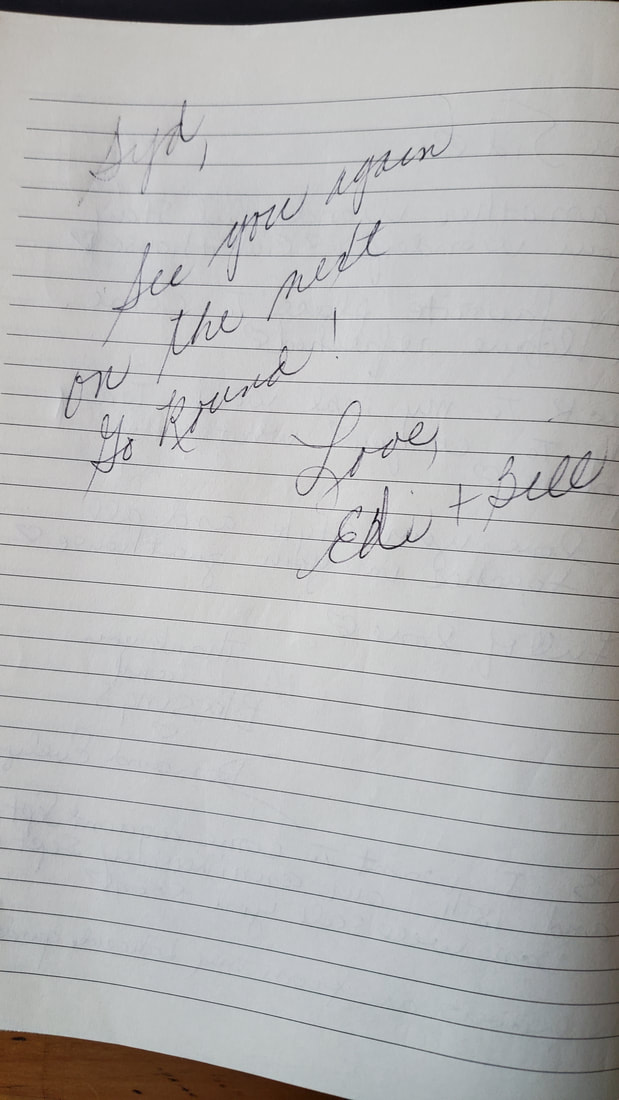 Syd,
See you again
on the next
Go Round!
Love,
Edi + Bill